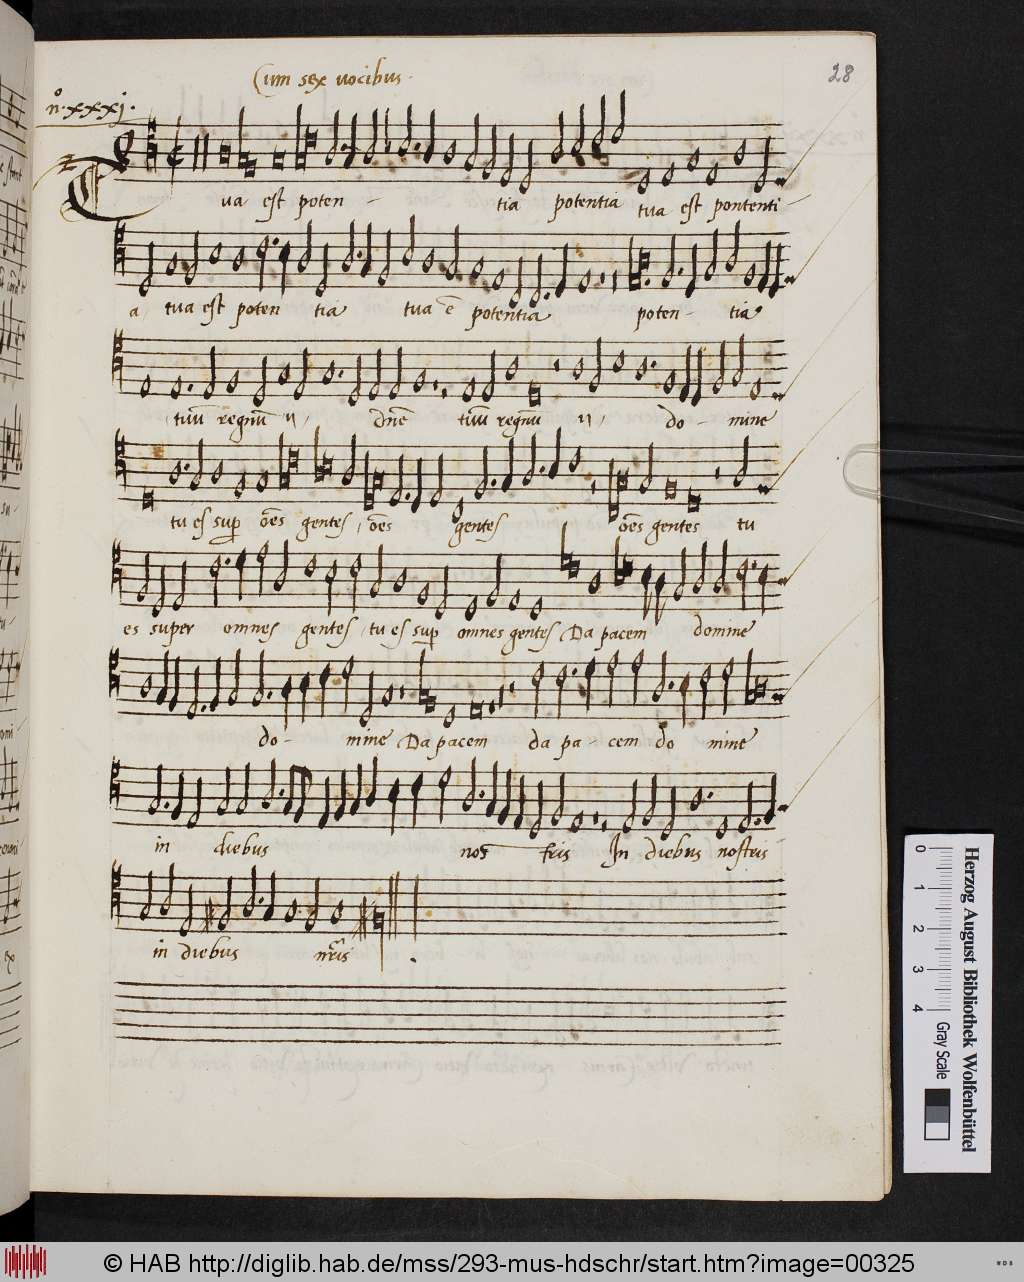 Cum sex vocibus.
28
n.o xxxj.
Tua est poten - tia potentia tua est pontenti-
a tua est poten tia tua ē potentia poten - tia
tuū regnū ij, dn̄e tuū regnū ij, do - mine
tu es sup̱ ōēs gentes, ōēs gentes ōēs gentes tu
es super omnes gentes, tu es sup̱ omnes gentes Da pacem domine
do - mine Da pacem da pa - cem do mine
in diebus nos tris In diebus nostris
in diebus nr̄is
Herzog August Bibliothek Wolfenbüttel
0 1 2 3 4 Gray Scale
© HAB http://diglib.hab.de/mss/293-mus-hdschr/start.htm?image=00325